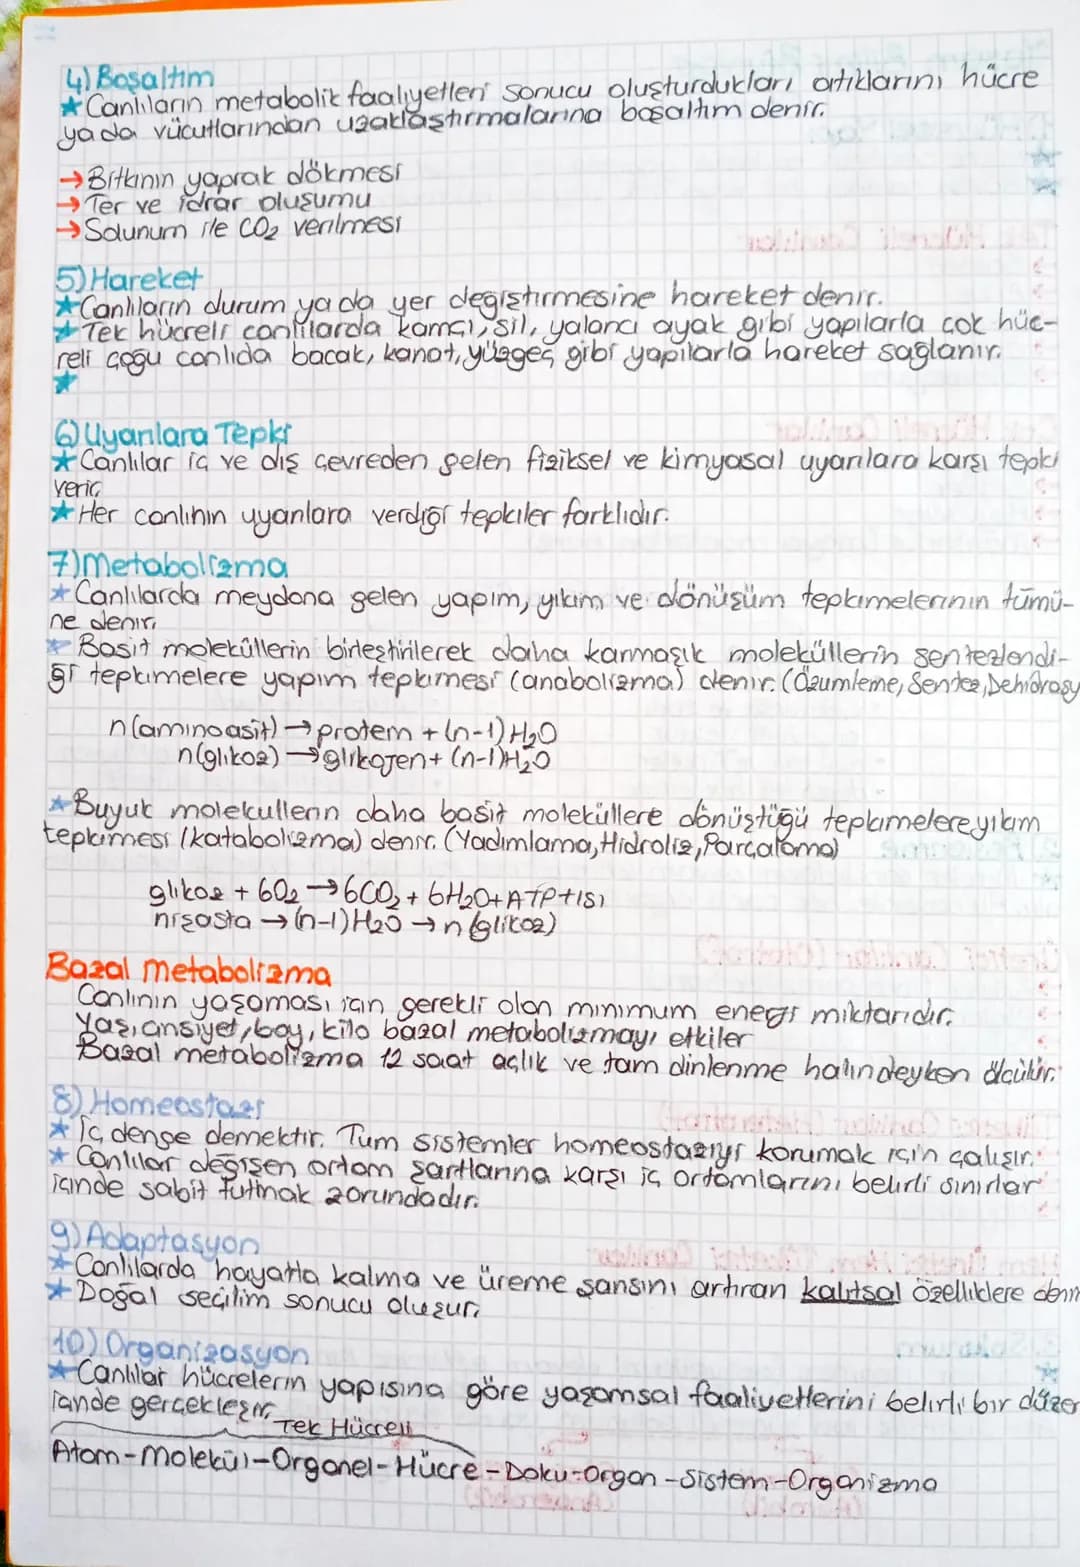 4) Boşaltım
★ Canlıların metabolik faaliyetleri sonucu oluşturdukları artıklarını hücre
ya da vücutlarından uzaklaştırmalarına boşaltım denir.
→ Bitkinin yaprak dökmesi
→ Ter ve idrar oluşumu
→ Solunum ile CO₂ verilmesi
5) Hareket
★ Canlıların durum ya da yer değiştirmesine hareket denir.
★ Tek hücreli canlılarda kamçı, sil, yalancı ayak gibi yapılarla çok hüc-
reli çoğu canlıda bacak, kanat, yüzgeç gibi yapılarla hareket sağlanır.
★
6) Uyarılara Tepki
★ Canlılar iç ve dış çevreden gelen fiziksel ve kimyasal uyarılara karşı tepki
verir.
★ Her canlının uyarılara verdiği tepkiler farklıdır.
7) Metabolizma
★ Canlılarda meydana gelen yapım, yıkım ve dönüşüm tepkimelerinin tümü-
ne denir.
★ Basit moleküllerin birleştirilerek daha karmaşık moleküllerin sentezlendi-
ği tepkimelere yapım tepkimesi (anabolizma) denir. (Özümleme, Sentez, Dehidrasy
n(aminoasit) → protein + (n-1) H₂O
n(glikoz) → glikojen + (n-1) H₂O
★ Buyuk molekullerin daha basit moleküllere dönüştüğü tepkimelere yıkım
tepkimesi (katabolizma) denir. (Yadımlama, Hidroliz, Parçalama)
glikoz + 6O₂ → 6CO₂ + 6H₂O + ATP + ısı
nişasta → (n-1) H₂O → n (glikoz)
Bazal Metabolizma
Canlının yaşaması için gerekli olan minimum enerji miktarıdır.
Yaş, cinsiyet, boy, kilo bazal metabolizmayı etkiler
Bazal metabolizma 12 saat açlık ve tam dinlenme halindeyken ölçülür.
8) Homeostazi
★ İç denge demektir. Tum sistemler homeostaziyi korumak için çalışır.
★ Canlılar değişen ortam şartlarına karşı iç ortamlarını belirli sınırlar
içinde sabit tutmak zorundadır.
9) Adaptasyon
★ Canlılarda hayatta kalma ve üreme şansını artıran kalıtsal özelliklere denir
★ Doğal seçilim sonucu oluşur.
10) Organizasyon
★ Canlılar hücrelerin yapısına göre yaşamsal faaliyetlerini belirli bir düzen
içinde gerçekleşir.
Tek Hücreli
Atom-Molekül-Organel-Hücre-Doku-Organ-Sistem-Organizma